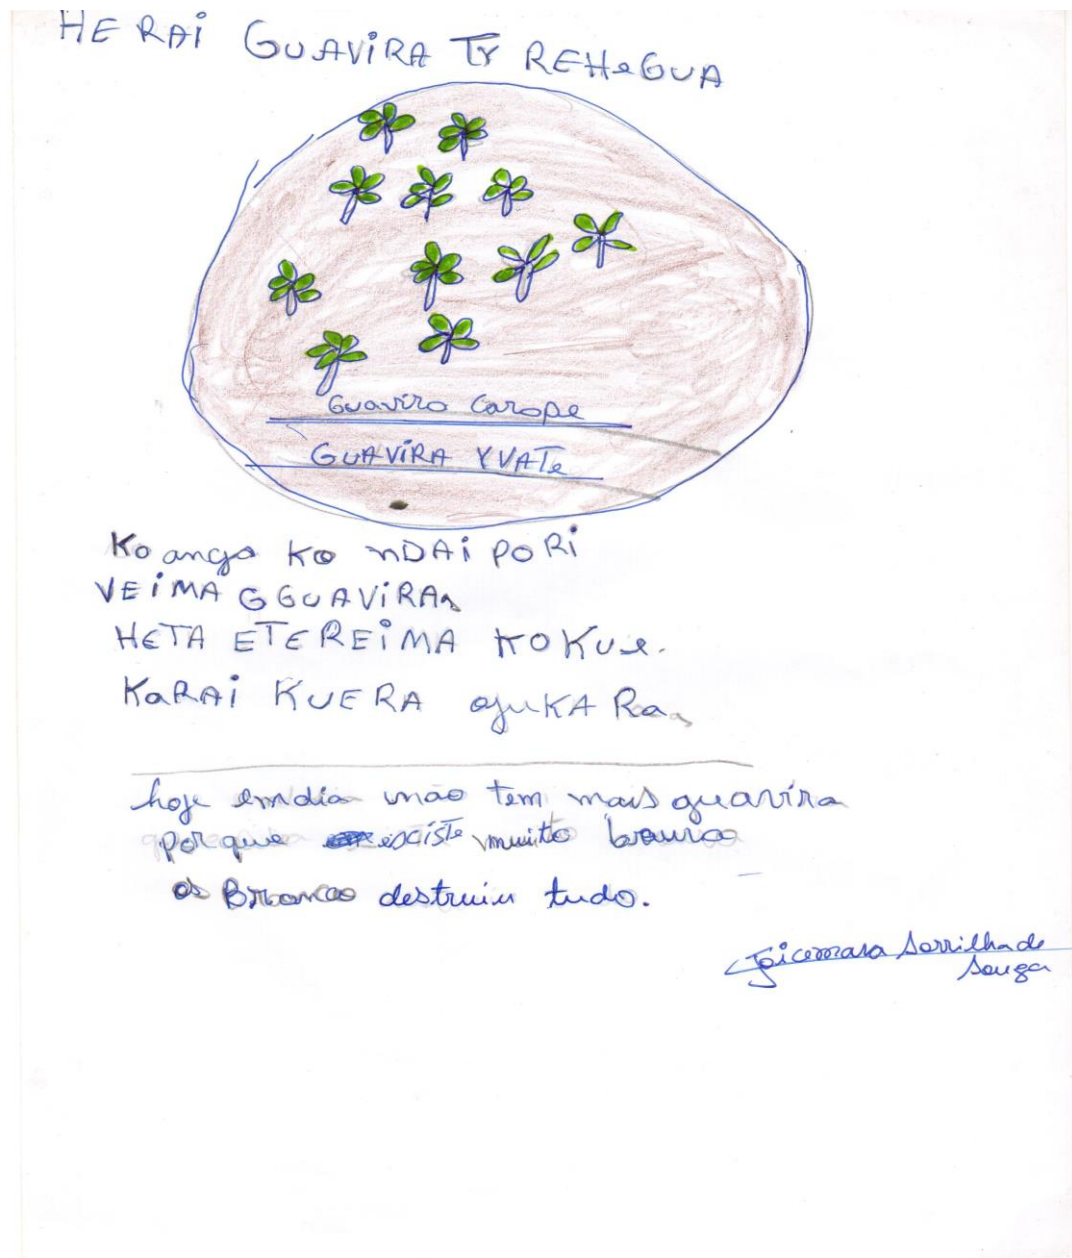 HERAI GUAVIRA TY REHEGUA
Guaviro Carope
GUAVIRA YVATE
Ko anga ko NDAIPORI
VEIMA GGUAVIRA
HETA ETEREIMA KOKUe.
KaRAI KUERA ojuKA Ra
hoje emdia não tem mais guavira
porque existe muito branco
os Branco destruiu tudo.
Joicemara Sorrilha de
Souza